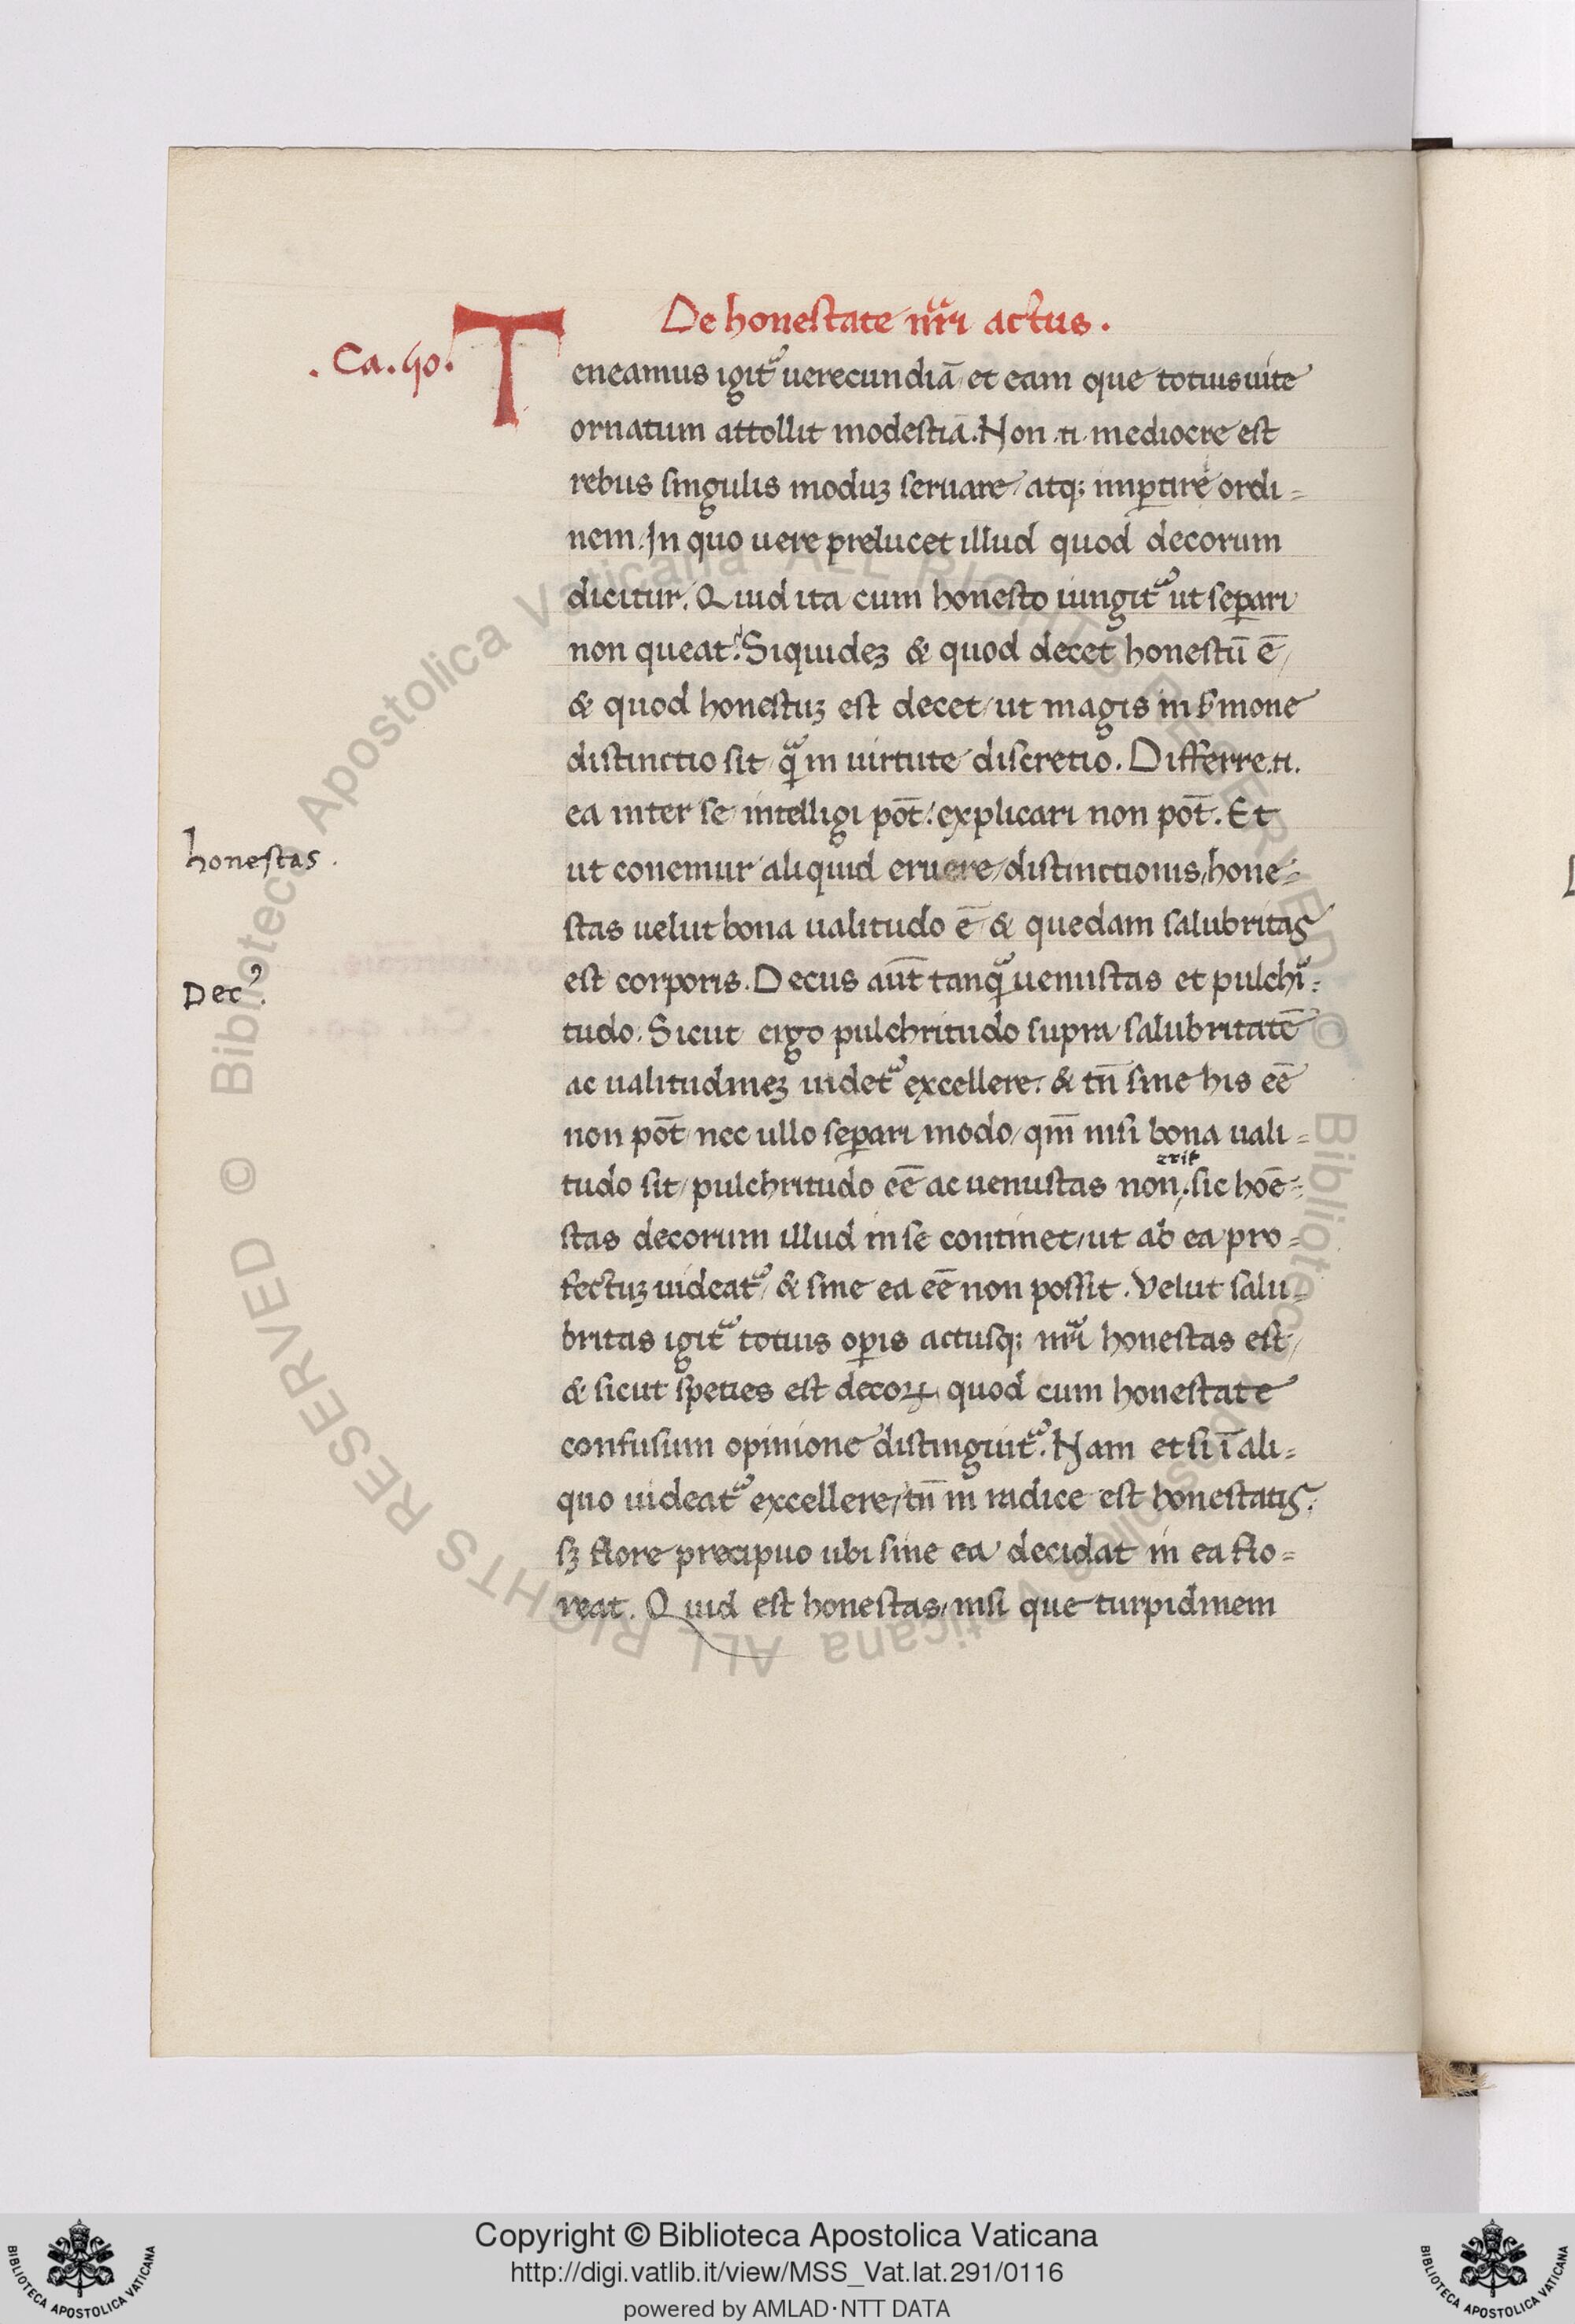 De honestate nr̄i actus.
.Ca.40.
Teneamus igit᷑ uerecundiā et eam que totius uite
ornatum attollit modestiā. Non .n. mediocre est
rebus singulis moduꝫ seruare / atqꝫ imꝑtire ordi=
nem. In quo uere prelucet illud quod decorum
dicitur. Quid ita cum honesto iungit᷑ ut seꝑari
non queat? Siquideꝫ & quod decet honestū ē /
& quod honestuꝫ est decet / ut magis in ẜmone
distinctio sit / qᷓ in uirtute discretio. Differre .n.
ea inter se intelligi pōt: explicari non pōt. Et
honestas.
ut conemur aliquid eruere / distinctionis, hone=
stas uelut bona ualitudo ē & quedam salubritas
Decꝰ.
est corporis. Decus aūt tanqᷓ uenustas et pulchͥ=
tudo. Sicut ergo pulchritudo supra salubritatē
ac ualitudineꝫ uidet᷑ excellere: & tn̄ sine his eē
non pōt / nec ullo seꝑari modo / qm̄ nisi bona uali=
erit
tudo sit / pulchritudo eē ac uenustas non, sic hoē=
stas decorum illud in se continet / ut ab ea pro=
fectuꝫ uideat᷑ / & sine ea eē non possit. Velut salu=
britas igit᷑ totius oꝑis actusqꝫ nr̄i honestas est /
& sicut speties est decoꝝ, quod cum honestate
confusum opinione distinguit᷑. Nam et si ī ali=
quo uideat᷑ excellere / tn̄ in radice est honestatis,
sꝫ flore precipuo ubi sine ea decidat in ea flo=
reat. Quid est honestas / nisi que turpidinem
© Biblioteca Apostolica Vaticana ALL RIGHTS RESERVED © Biblioteca Apostolica Vaticana ALL RIGHTS RESERVED
Copyright © Biblioteca Apostolica Vaticana
http://digi.vatlib.it/view/MSS_Vat.lat.291/0116
powered by AMLAD·NTT DATA
BIBLIOTECA APOSTOLICA VATICANA
BIBLIOTECA APOSTOLICA VATICANA